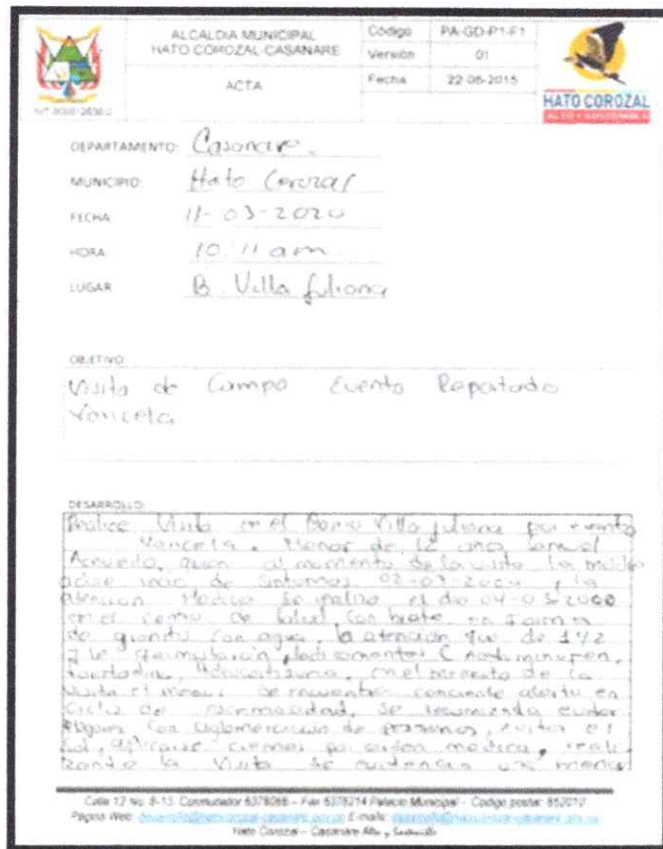 ALCALDIA MUNICIPAL
HATO COROZAL-CASANARE
ACTA
Código PA-GD-P1-F1
Versión 01
Fecha 22-06-2015
HATO COROZAL
DEPARTAMENTO: Casanare.
MUNICIPIO: Hato Corozal
FECHA 11-03-2020
HORA 10:11 am.
LUGAR B. Villa Juliana
OBJETIVO
Visita de Campo Evento Reportado
Varicela
DESARROLLO:
Realice Visita en el Barrio Villa Juliana por evento
Varicela. Menor de 12 años Samuel
Acevedo, quien al momento de la visita la madre
inicio de Sintomas 02-03-2020, la
atencion Medica Se realizo el dia 04-03-2020
en el centro de Salud, con brote en forma
de granito con agua, la atención fue de
y le formularon Medicamentos (Acetaminofen,
en el momento de la
visita el menor se encuentra conciente alerta en
Ciclo de se recomienda evitar
lugares con aglomeración de personas, evitar el
Sol, aplicarse cremas por orden medica,
la Visita Se evidencia una menor
Calle 12 No. 8-13. Conmutador 6378066 – Fax 6378214 Palacio Municipal - Código postal: 852010
Página Web: E-mails:
Hato Corozal – Casanare